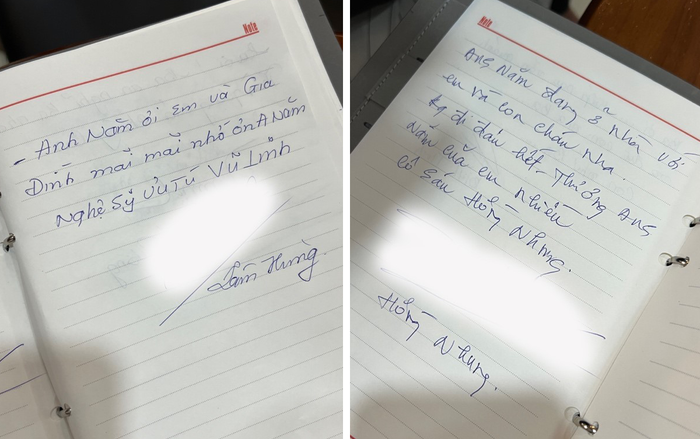 Note
- Anh Năm ơi em và Gia
Đình mãi mãi nhớ ơn A Năm
Nghệ Sỹ Ưu Tú Vũ Linh
Lâm Hùng.
Note
Anh Năm đang ở nhà với
em và con cháu nha.
kg đi đâu hết. Thương Anh
Năm của em nhiều
cô Sáu Hồng Nhung.
Hồng Nhung.